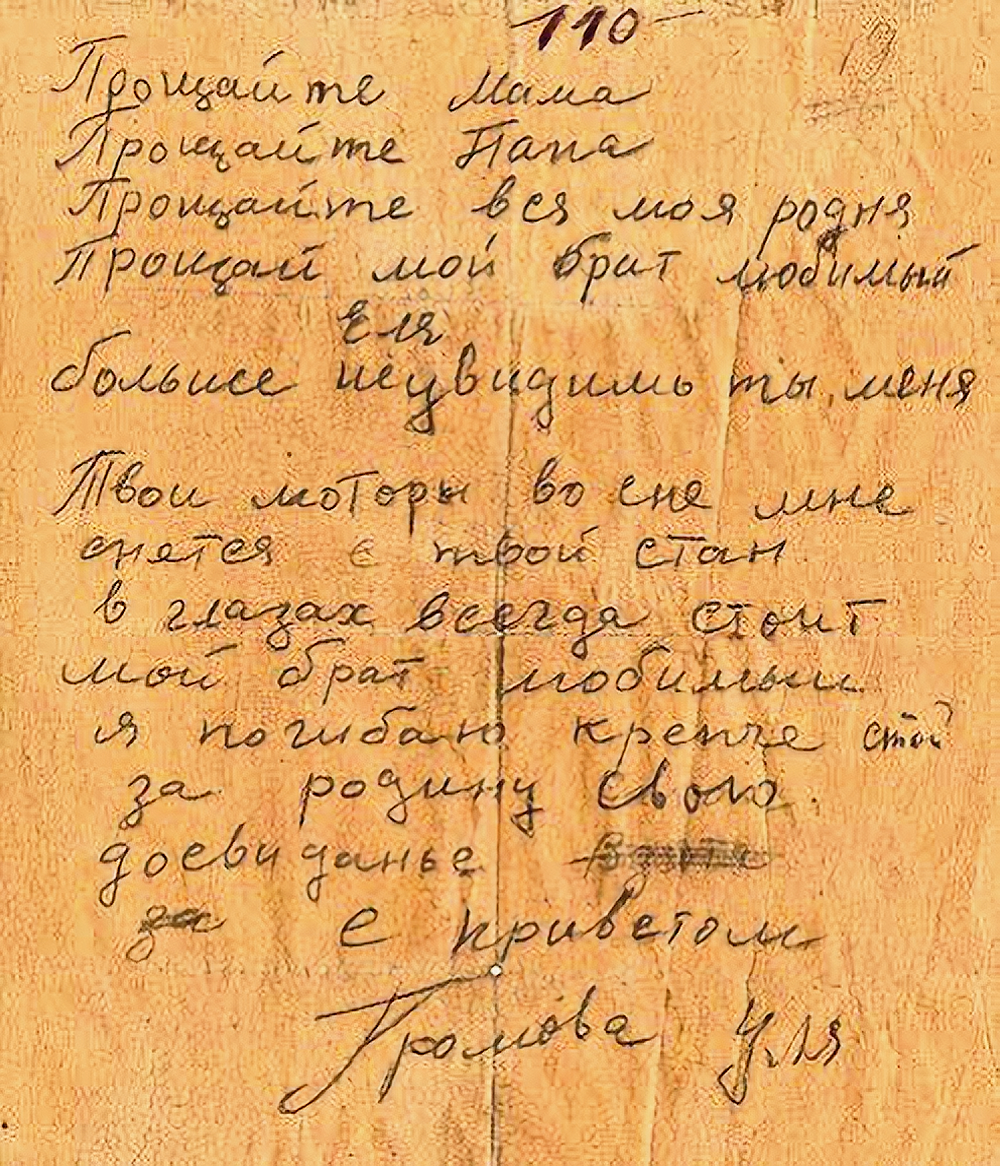 110
Прощайте Мама
Прощайте Папа
Прощайте вся моя родня
Прощай мой брат любимый
Еля
больше неувидишь ты меня
Твои моторы во сне мне
снетса с твой стан
в глазах всегда стоит
мой брат любимыи
я погибаю крепче стой
за родину свою.
досвиданье
за
С приветом
Громова Уля